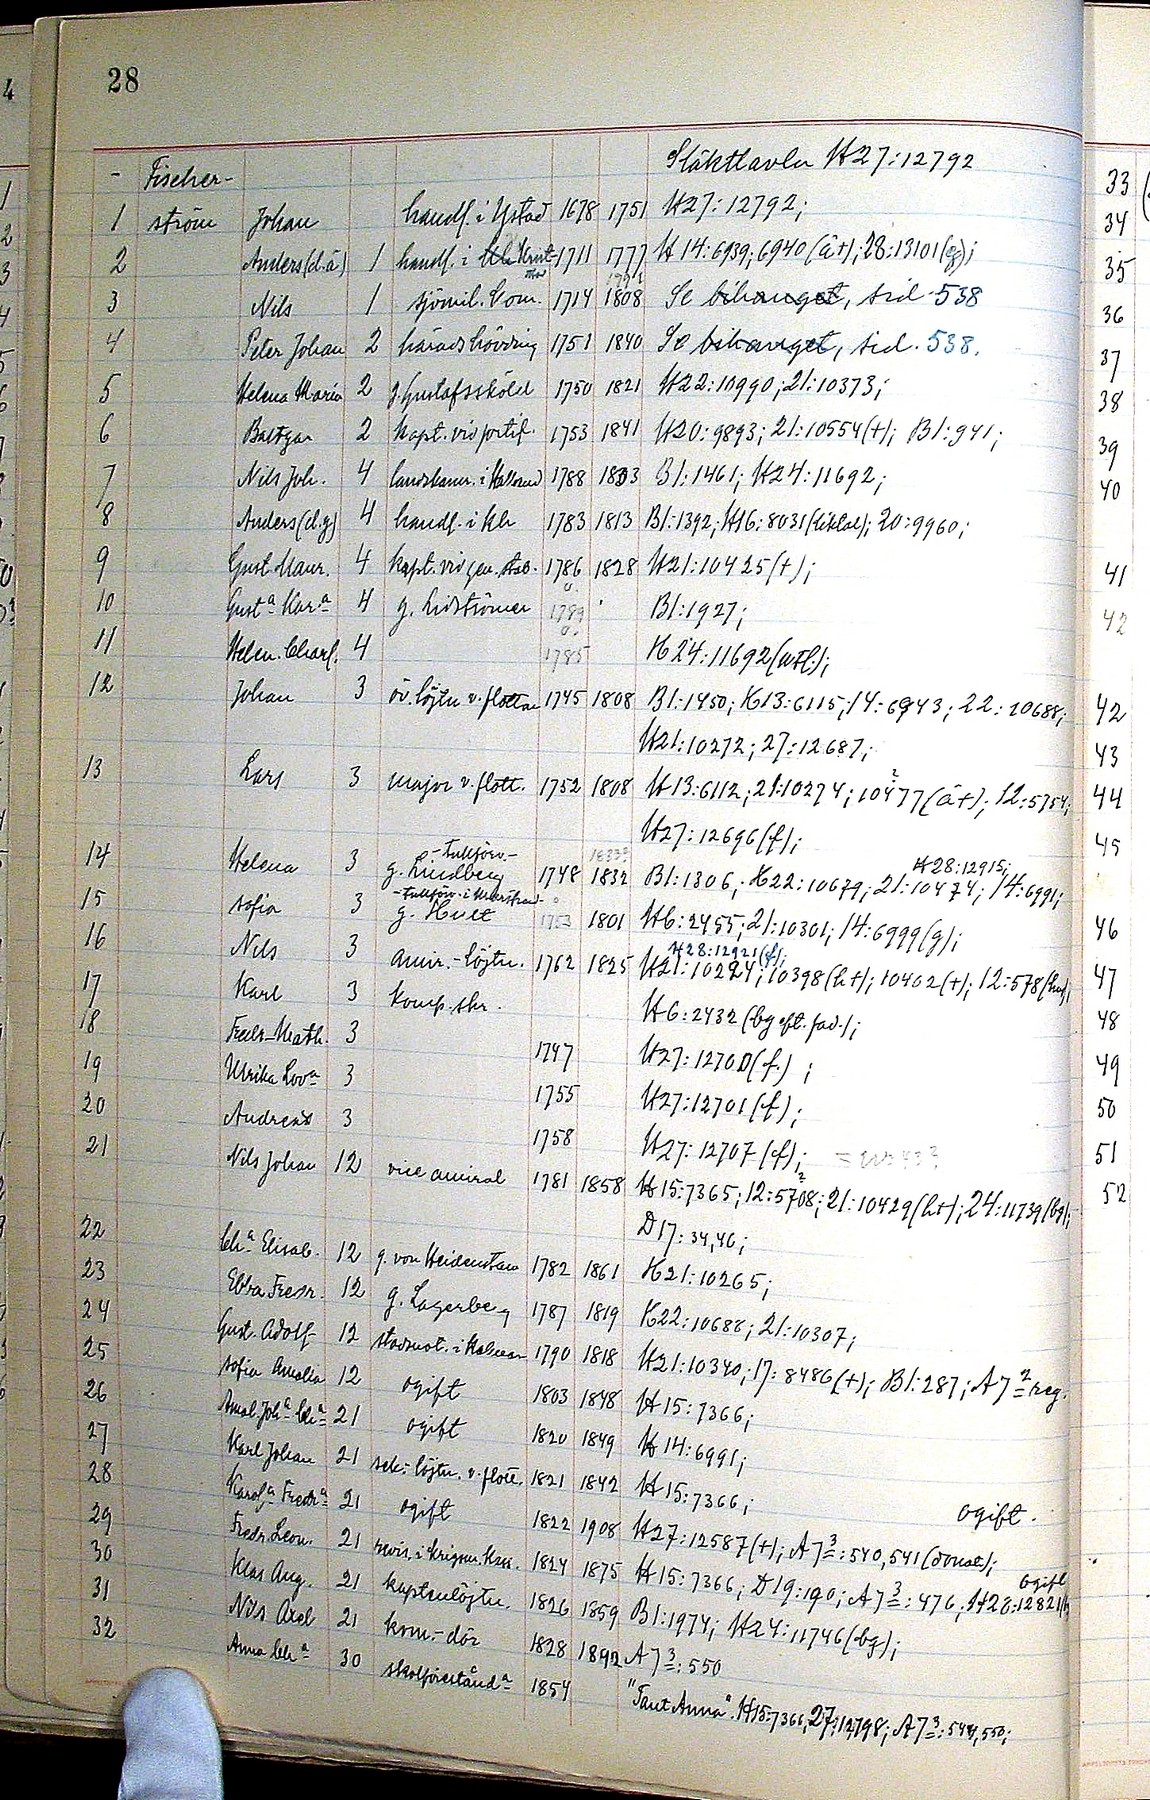 28
- Fischer- Släkttavla H27:12792
1 ström Johan handl. i Ystad 1678 1751 H27:12792;
2 Anders (d.ä) 1 handl. i 1711 1777 H14:6939, 6940 (ä+), 28:13101(g);
3 Nils 1 sjömil. Com. 1714 1808 Se bihanget, sid. 538
4 Peter Johan 2 häradshövding 1751 1840 Se bihanget, sid. 538.
5 Helena Maria 2 g. Gustafssköld 1750 1821 H22:10990; 21:10373;
6 Baltzar 2 kapt. vid fortif. 1753 1841 H20:9893; 21:10554(+); B1:941;
7 Nils Joh. 4 1788 1833 B1:1461; H24:11692;
8 Anders (d.y) 4 handl. i Kh 1783 1813 B1:1392; H16:8031 20:9960;
9 Gust. Maur. 4 kapt. vid gen. stab. 1786 1828 H21:10425(+);
10 Gustª Karª 4 g. Lidströmer 1789 B1:1927;
11 Helen. Charl. 4 1785 H24:11692
12 Johan 3 öv. löjtn v. flottan 1745 1808 B1:1450; H13:6115; 14:6943; 22:10688;
H21:10272; 27:12687;
13 Lars 3 major v. flott. 1752 1808 H13:6112; 21:10274; 10477(ä+); 12:5754;
H27:12696(f);
14 Helena 3 g. Lindberg 1748 1832 B1:1306; H22:10679; 21:10474; 14:6991;
H28:12915;
15 Sofia 3 g. Hult 1753 1801 H6:2455; 21:10301; 14:6999(g);
H28:12921(f);
16 Nils 3 amir.-löjtn. 1762 1825 H21:10224; 10398(h+); 10402(+); 12:578
17 Karl 3 komp. skr. H6:2432 (bg eft. fad.);
18 Fredr-Math. 3 1747 H27:12700(f.);
19 Ulrika Lovª 3 1755 H27:12701(f);
20 Andreas 3 1758 H27:12707(f);
21 Nils Johan 12 vice amiral 1781 1858 H15:7365; 12:5708; 21:10429(h+); 24:11739(bg);
D17:34,40;
22 Chª Elisab. 12 g. von Heidenstam 1782 1861 H21:10265;
23 Ebba Fredr. 12 g. Lagerberg 1787 1819 H22:10688; 21:10307;
24 Gust. Adolf 12 stadsnot. i Kalmar 1790 1818 H21:10340; 17:8486(+); B1:287; A7² reg.
25 Sofia Amalia 12 ogift 1803 1848 H15:7366;
26 Amal. Johª Chª 21 ogift 1820 1849 H14:6991;
27 Karl Johan 21 sek.-löjtn. v. flott. 1821 1842 H15:7366;
28 Karolª Fredrª 21 ogift 1822 1908 H27:12587(+); A7³:540,541 (donat); ogift.
29 Fredr. Leon. 21 1824 1875 H15:7366; D19:190; A7³:476; H28:12821 ogift
30 Klas Aug. 21 kaptenlöjtn. 1826 1859 B1:1974; H24:11746(bg);
31 Nils Axel 21 kom.-dör 1828 1892 A7³:550
32 Anna Chª 30 skolföreståndª 1854 "Tant Anna". H15:7366, 27:12798; A7³:544, 550;
33
34
35
36
37
38
39
40
41
42
42
43
44
45
46
47
48
49
50
51
52